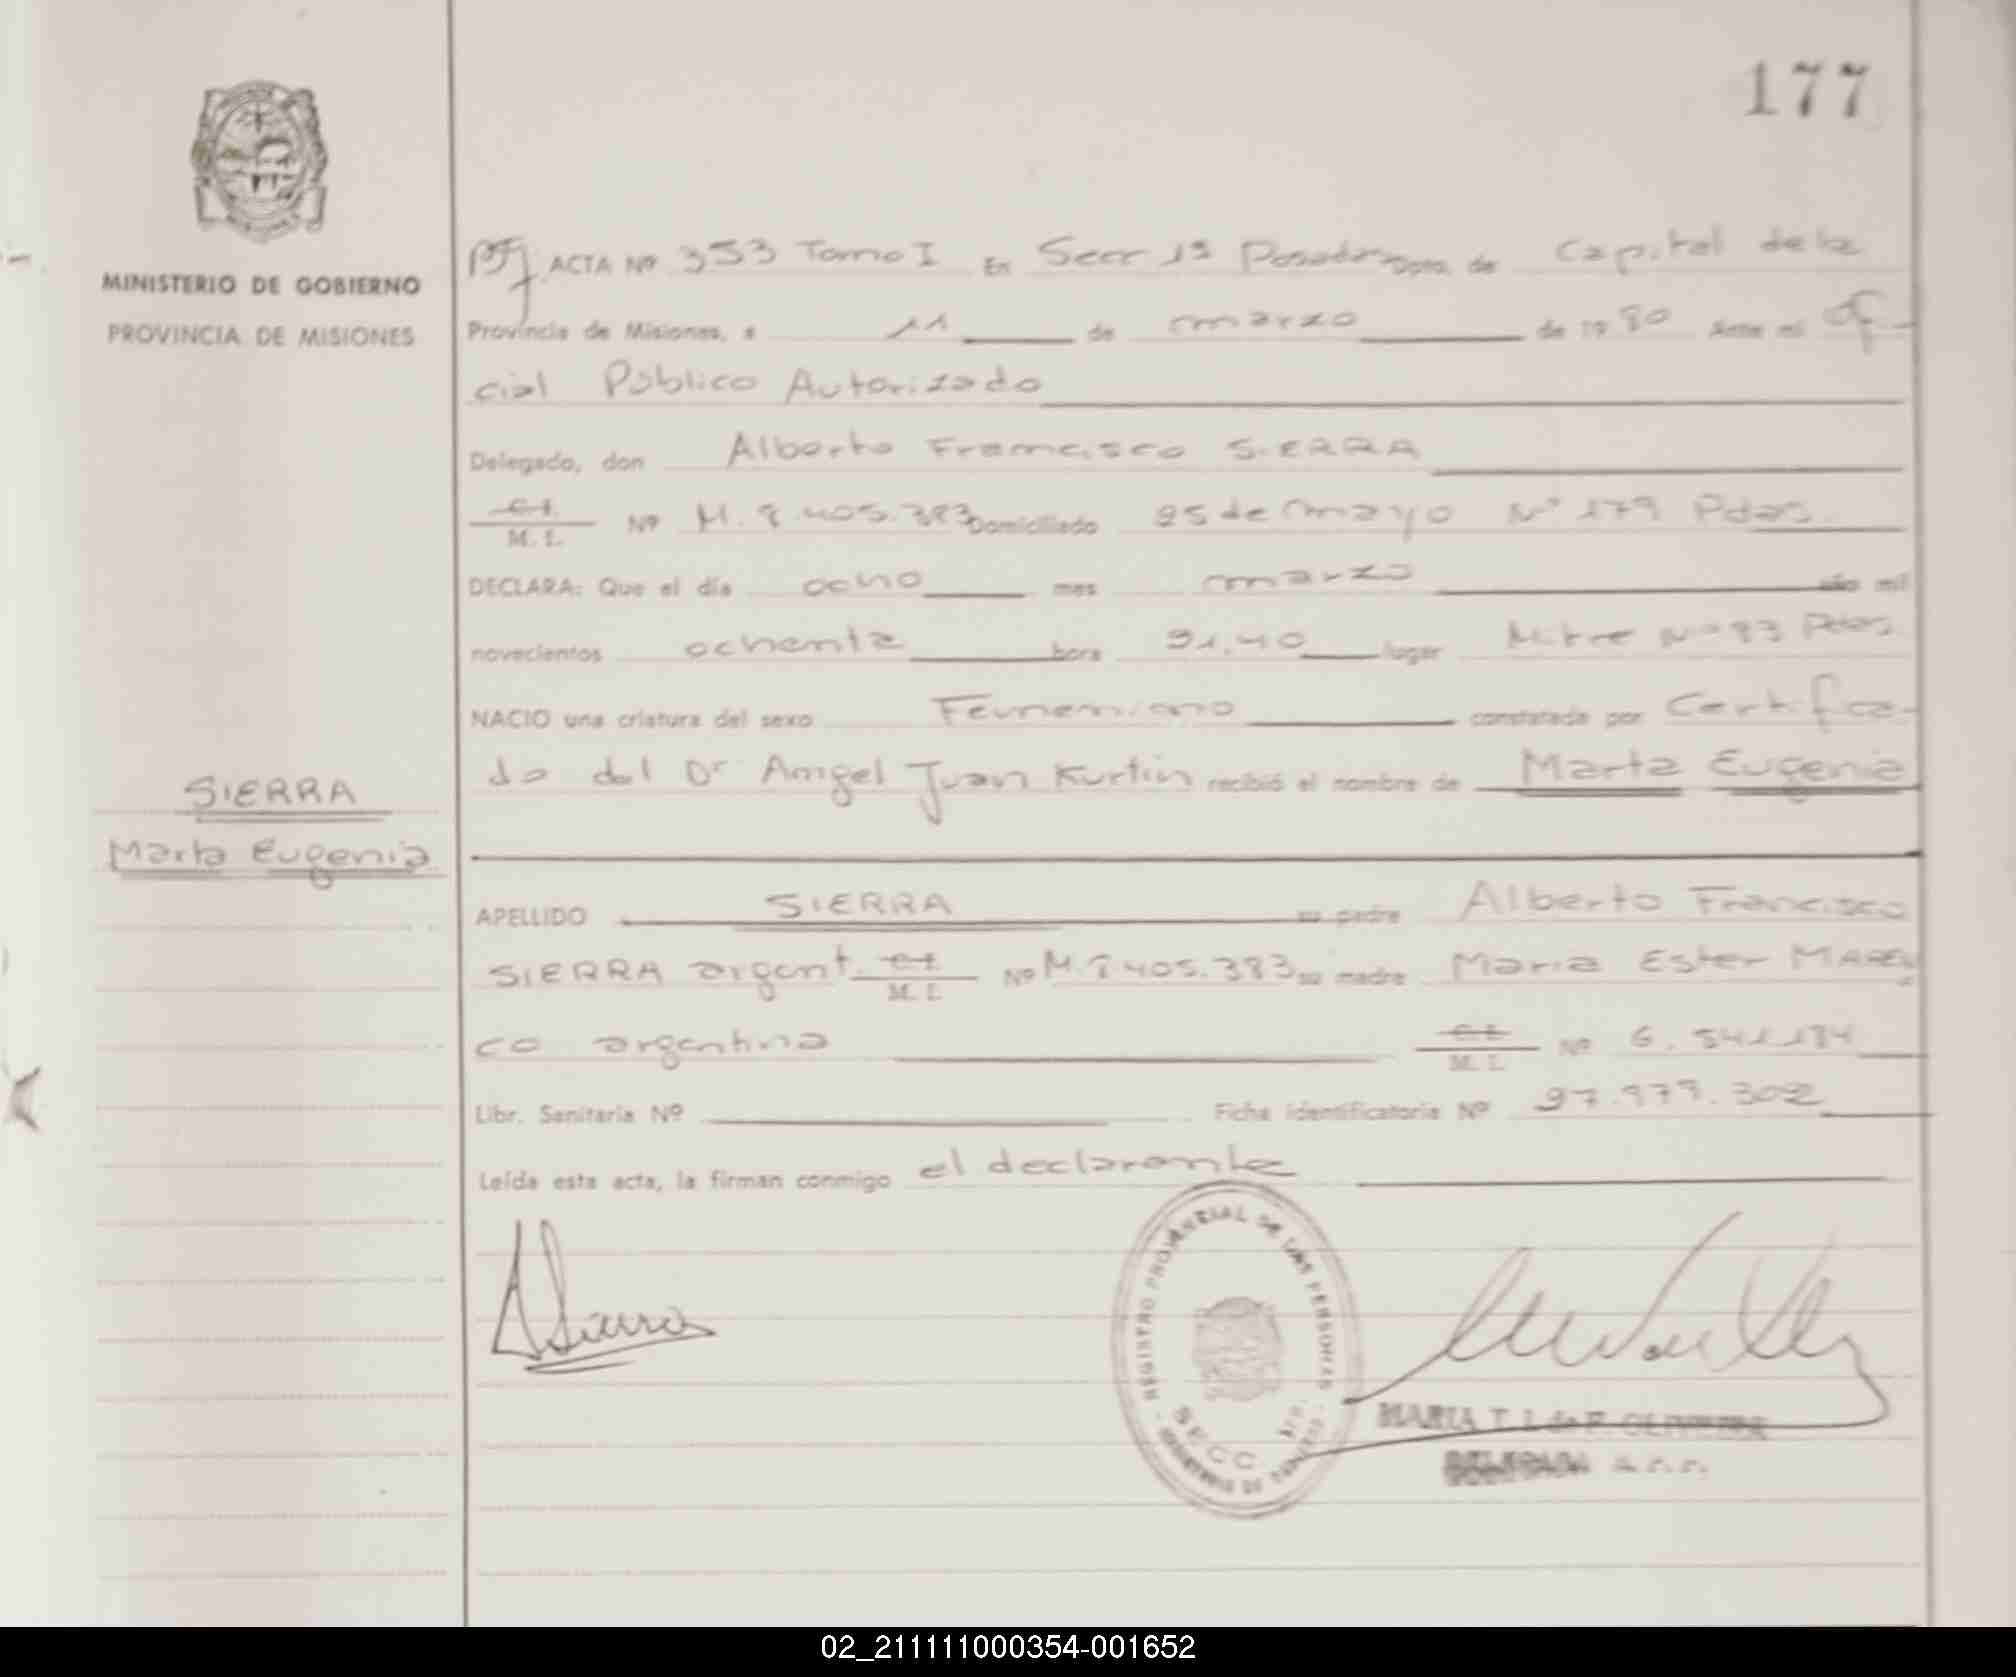 177
MINISTERIO DE GOBIERNO
PROVINCIA DE MISIONES
ACTA Nº 353 Tomo I En Secc 1ª Posadas Dpto. de Capital de la
Provincia de Misiones, a 11 de marzo de 1980 Ante mi Ofi-
cial Público Autorizado
Delegado, don Alberto Francisco SIERRA
C.I.
M. I. Nº M. 8.405.383 Domiciliado 25 de mayo Nº 179 Pdas.
DECLARA: Que el día ocho mes marzo año mil
novecientos ochenta hora 21,40 lugar Mitre Nº 93 Pdas.
NACIO una criatura del sexo Femenino constatada por Certifica-
do del Dr Angel Juan Kurtin recibió el nombre de Marta Eugenia
SIERRA
Marta Eugenia
APELLIDO SIERRA su padre Alberto Francisco
SIERRA argent. C.I. M. I. Nº M.8405.383 su madre Maria Ester MAREN
co argentina C.I. M. I. Nº 6.541.184
Libr. Sanitaria Nº Ficha identificatoria Nº 27.979.302
Leída esta acta, la firman conmigo el declarante
ASierra
REGISTRO PROVINCIAL DE LAS PERSONAS
SECC
MINISTERIO DE GOBIERNO
MARIA T. I. de F. OLIVEIRA
DELEGADA
02_211111000354-001652